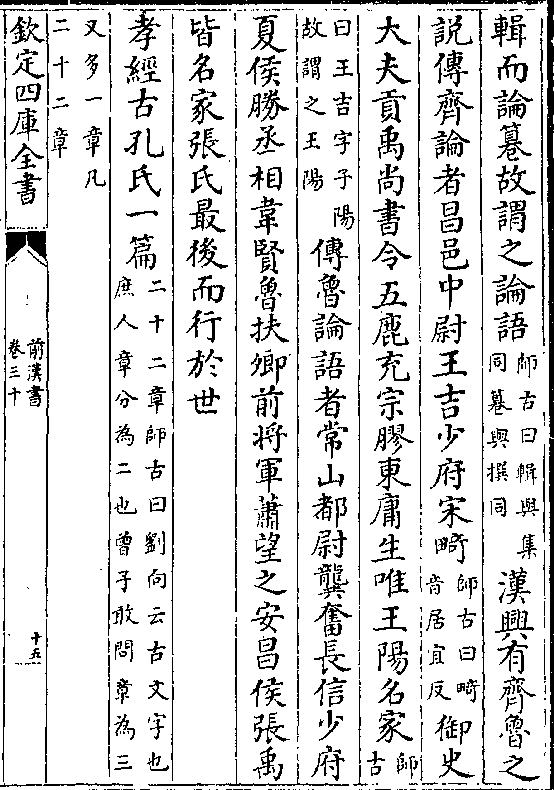 輯而論篹故謂之論語師古曰輯與集同篹與撰同漢興有齊魯之
説傳齊論者昌邑中尉王吉少府宋畸師古曰畸音居宜反御史
大夫貢禹尚書令五鹿充宗膠東庸生唯王陽名家師古
曰王吉字子陽故謂之王陽傳魯論語者常山都尉龔奮長信少府
夏侯勝丞相韋賢魯扶卿前將軍蕭望之安昌侯張禹
皆名家張氏最後而行於世
孝經古孔氏一篇二十二章師古曰劉向云古文字也庶人章分為二也曾子敢問章為三
又多一章凡二十二章
欽定四庫全書
前漢書
卷三十
十五